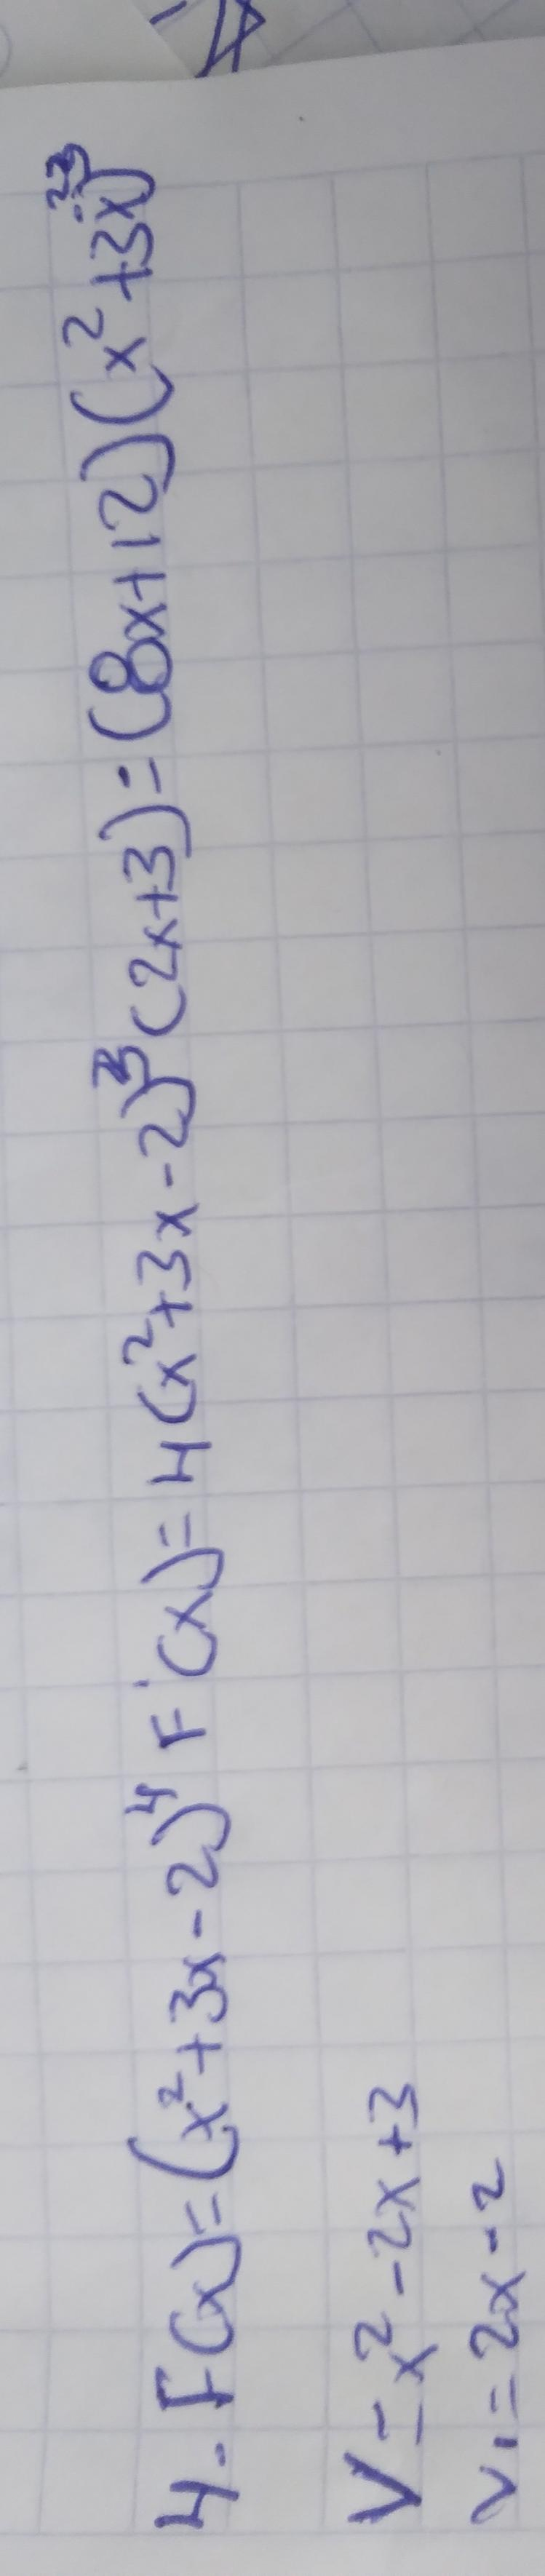 4. F(x)=(x²+3x-2)⁴ F'(x)=4(x²+3x-2)³(2x+3)=(8x+12)(x²+3x-2)³
V=x²-2x+3
V'=2x-2